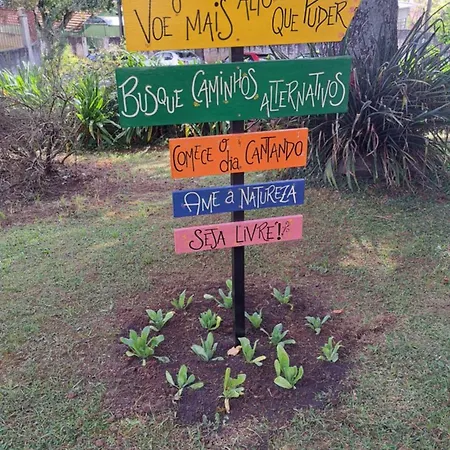 Voe mais alto
que puder
Busque caminhos alternativos
Comece o dia cantando
Ame a natureza
Seja livre!